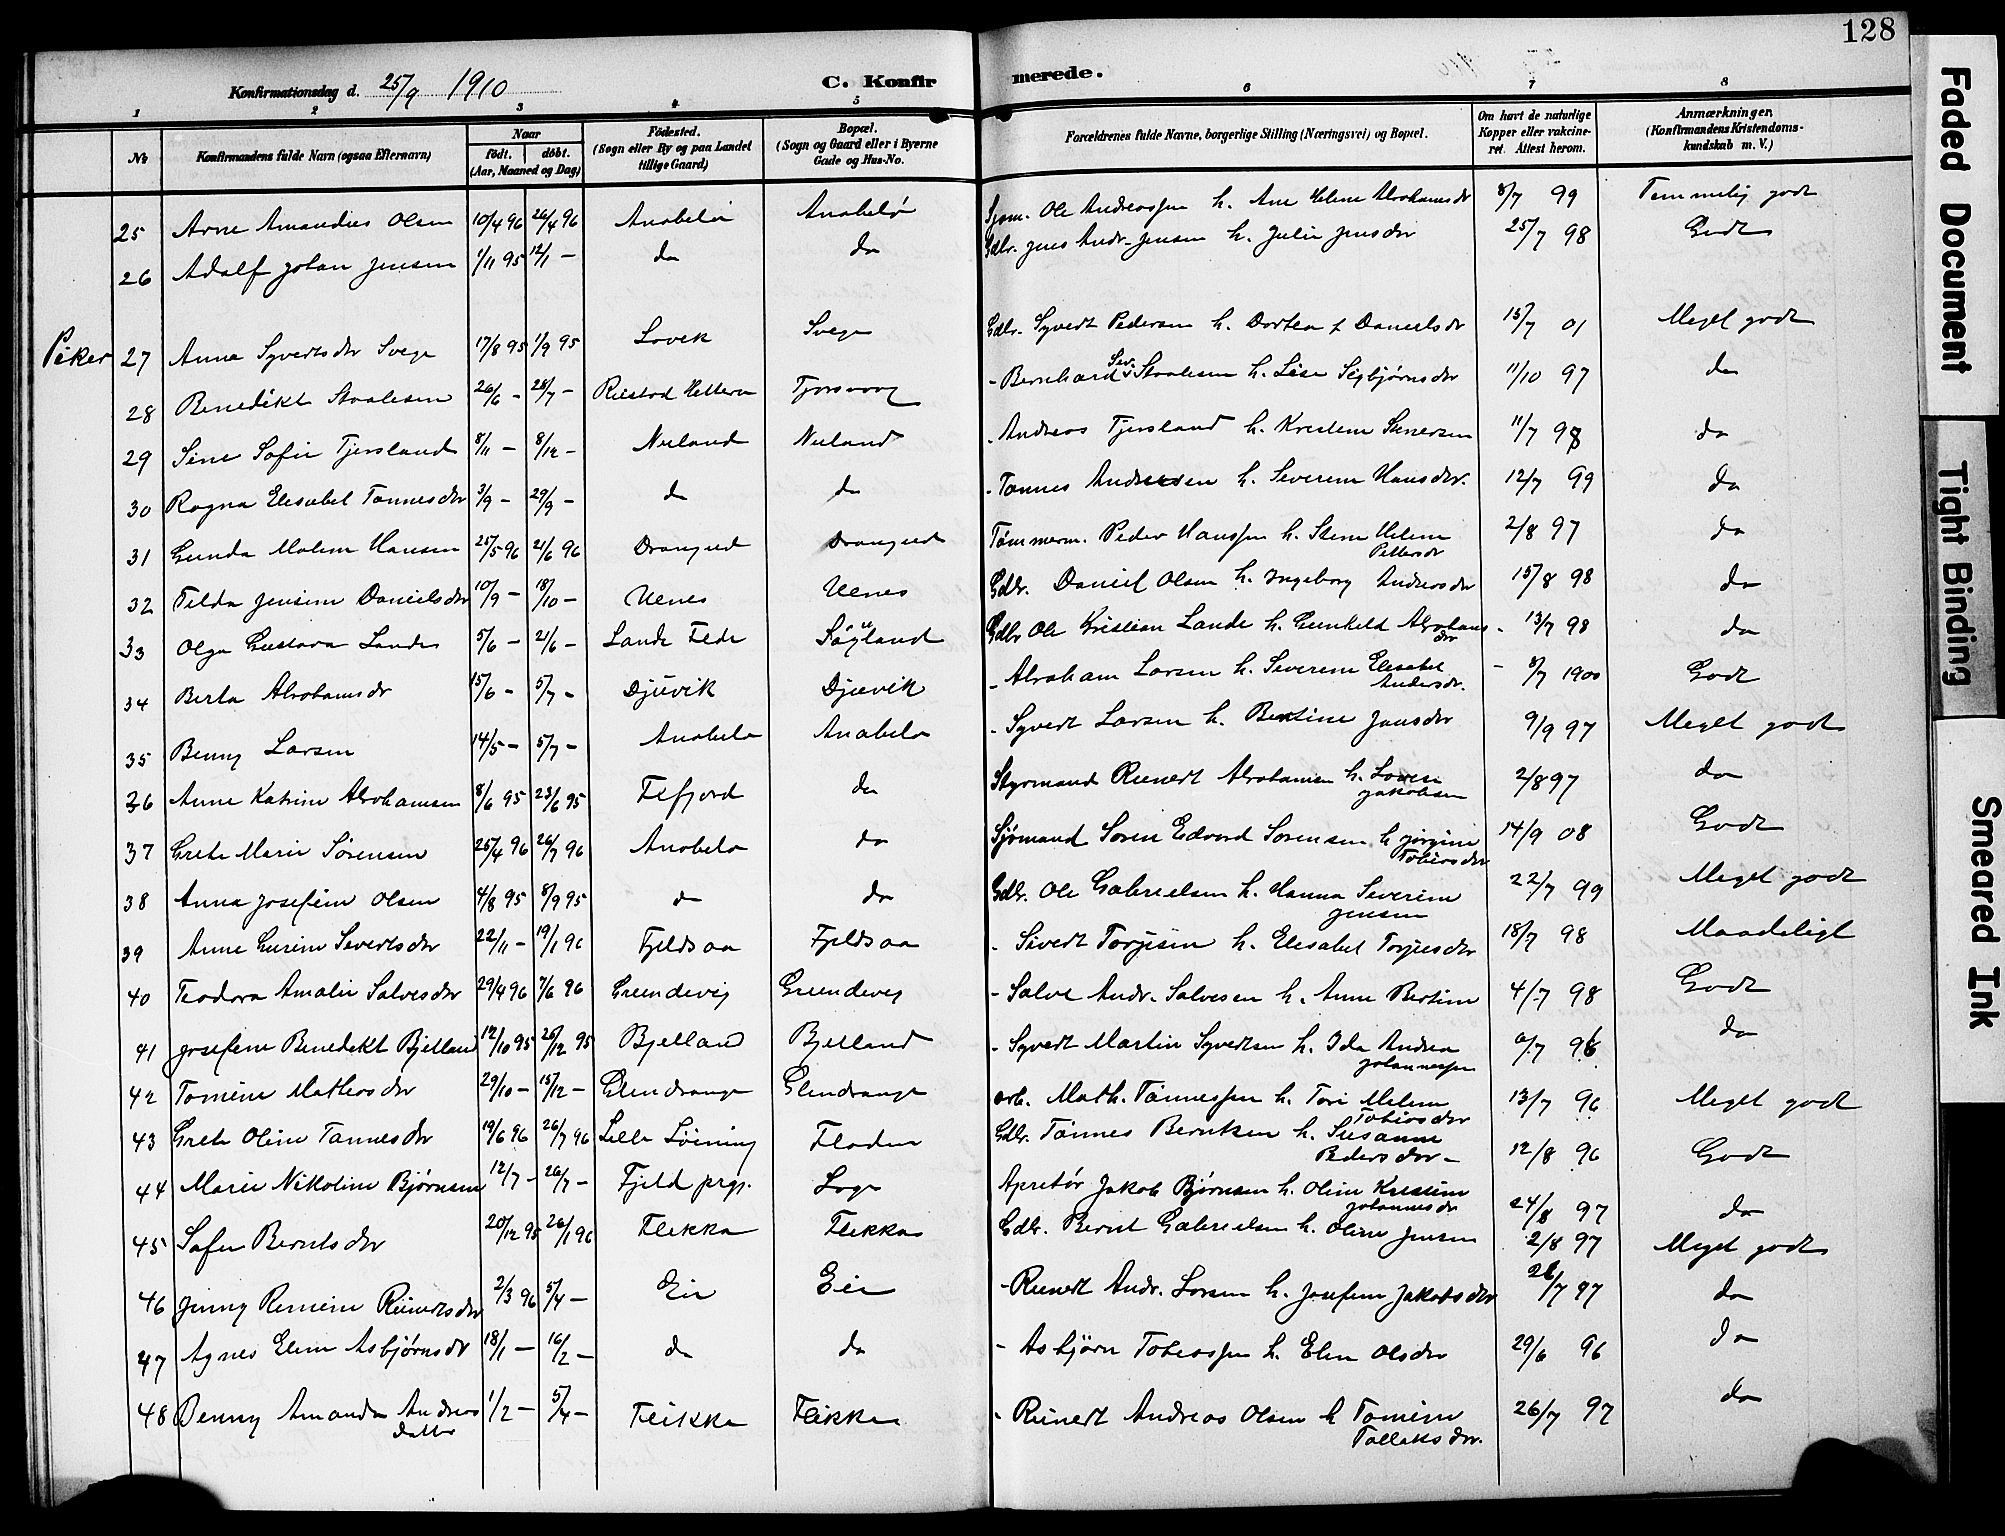 128
Konfirmationsdag d. 25/9 1910 C. Konfirmerede.
1 2 3 4 5 6 7 8
No Konfirmandens fulde Navn (ogsaa Efternavn) Naar født. døbt. (Aar, Maaned og Dag) Fødested. (Sogn eller By og paa Landet tillige Gaard) Bopæl. (Sogn og Gaard eller i Byerne Gade og Hus-No. Forældrenes fulde Navne, borgerlige Stilling (Næringsvei) og Bopæl. Om havt de naturlige Kopper eller vakcineret. Attest herom. Anmærkninger. (Konfirmandens Kristendomskundskab m. V.)
25 Arne Amandus Olsen 10/4 96 26/4 96 Anabelø Anabelø Sjøm. Ole Andreassen h. Ane Helene Abrahamsdr 8/7 99 Temmelig godt
26 Adolf Johan Jensen 1/11 95 12/1 — do do Gdbr. Jens Andr. Jensen h. Julie Jensdr 25/7 98 Godt
Piker
27 Anna Syvertsdr Svege 17/8 95 1/9 95 Lovek Svege Gdbr. Syvert Pedersen h. Dortea Danielsdr 15/7 01 Meget godt
28 Benedikt Staalesen 26/6 — 28/7 — Tjorsvaag - Bernhard Sev. Staalesen h. Lise Sigbjørnsdr 11/10 97 do
29 Sine Sofie Tjersland 8/11 — 8/12 — Nuland Nuland - Andreas Tjersland h. Kristine 11/7 98 do
30 Ragna Elisabet Tønnesdr 3/9 — 29/9 — do do - Tønnes Andersen h. Severine Hansdr. 12/7 99 do
31 Gunda Malene Hansen 25/5 96 21/6 96 Drangeid Drangeid Tømmerm. Peder Hanssen h. Stine Helene Pettersdr 2/8 97 do
32 Tilda Jensine Danielsdr 10/9 — 18/10 — Uenes Uenes Gdbr. Daniel Olsen h. Ingeborg Andreasdr 15/8 98 do
33 Olga Gustava Lande 5/6 — 21/6 — Lande Fede Søyland Gdbr Ole Kristian Lande h. Gunhild Abrahamsdr - 13/7 98 do
34 Berta Abrahamsdr 15/6 — 5/7 — Djuvik Djuvik - Abraham Larsen h. Severine Elisabet Andersdr. - 8/7 1900 Godt
35 Benny Larsen 14/5 — 5/7 — Anabelø Anabelø - Syvert Larsen h. Bertine Jansdr 9/9 97 Meget godt
36 Anne Katrine Abrahamsen 8/6 95 23/6 95 Fefjord do Styrmand Reinert Abrahamsen h. Lovise Jakobsen 2/8 97 do
37 Grete Marie Sørensen 25/4 96 26/7 96 Anabelø do Sjømand Søren Edvard Sørensen h Jørgine Tobiasdr 14/9 08 Godt
38 Anna Josefine Olsen 4/8 95 8/9 95 do do Gdbr. Ole Gabrielsen h. Hanna Severine Jensen 22/7 99 Meget godt
39 Anne Gurine Sivertsdr 22/11 — 19/1 96 Fjeldsaa Fjeldsaa - Sivert Torjusen h. Elisabet Torjusdr 18/7 98 Maadeligt
40 Teodora Amalie Salvesdr 29/4 96 7/6 96 Grundevig Grundevig - Salve Andr. Salvesen h. Anne Bertine 4/7 98 Godt
41 Josefine Benedikt Bjelland 12/10 95 26/12 95 Bjelland Bjelland - Syvert Martin Syvertsen h. Ida Andrea Johannessen 9/7 96 do
42 Tomine Mathiasdr 29/10 — 15/12 — Glendrange Glendrange arb. Math. Tønnessen h. Tori Malene Tobiasdr 13/7 96 Meget godt
43 Grete Oline Tønnesdr 19/6 96 26/7 96 Lille Løining Fladen Gdbr. Tønnes Berntsen h. Susanne Pedersdr - 12/8 96 Godt
44 Marie Nikoline Bjørnsen 12/7 — 26/7 — Fjeld prgj. Loga Apretør Jakob Bjørnsen h. Oline Kristine Johannesdr 24/8 97 do
45 Sofie Berntsdr 20/12 95 26/1 96 Flikka Flikka Gdbr. Bernt Gabrielsen h. Oline Jensen 2/8 97 Meget godt
46 Jenny Remine Reinertsdr 2/3 96 5/4 — Eie Eie - Reinert Andr. Larsen h. Josefine Jakobsdr 26/7 97 do
47 Agnes Eline Asbjørnsdr 18/1 — 16/2 — do do - Asbjørn Tobiassen h. Elen Olsdr 29/6 96 do
48 Benny Amanda Andreas datter 1/2 — 5/4 — Flikka Flikka - Reinert Andreas Olsen h Tomine Tollaksdr. 26/7 97 do
Faded Document
Tight Binding
Smeared Ink